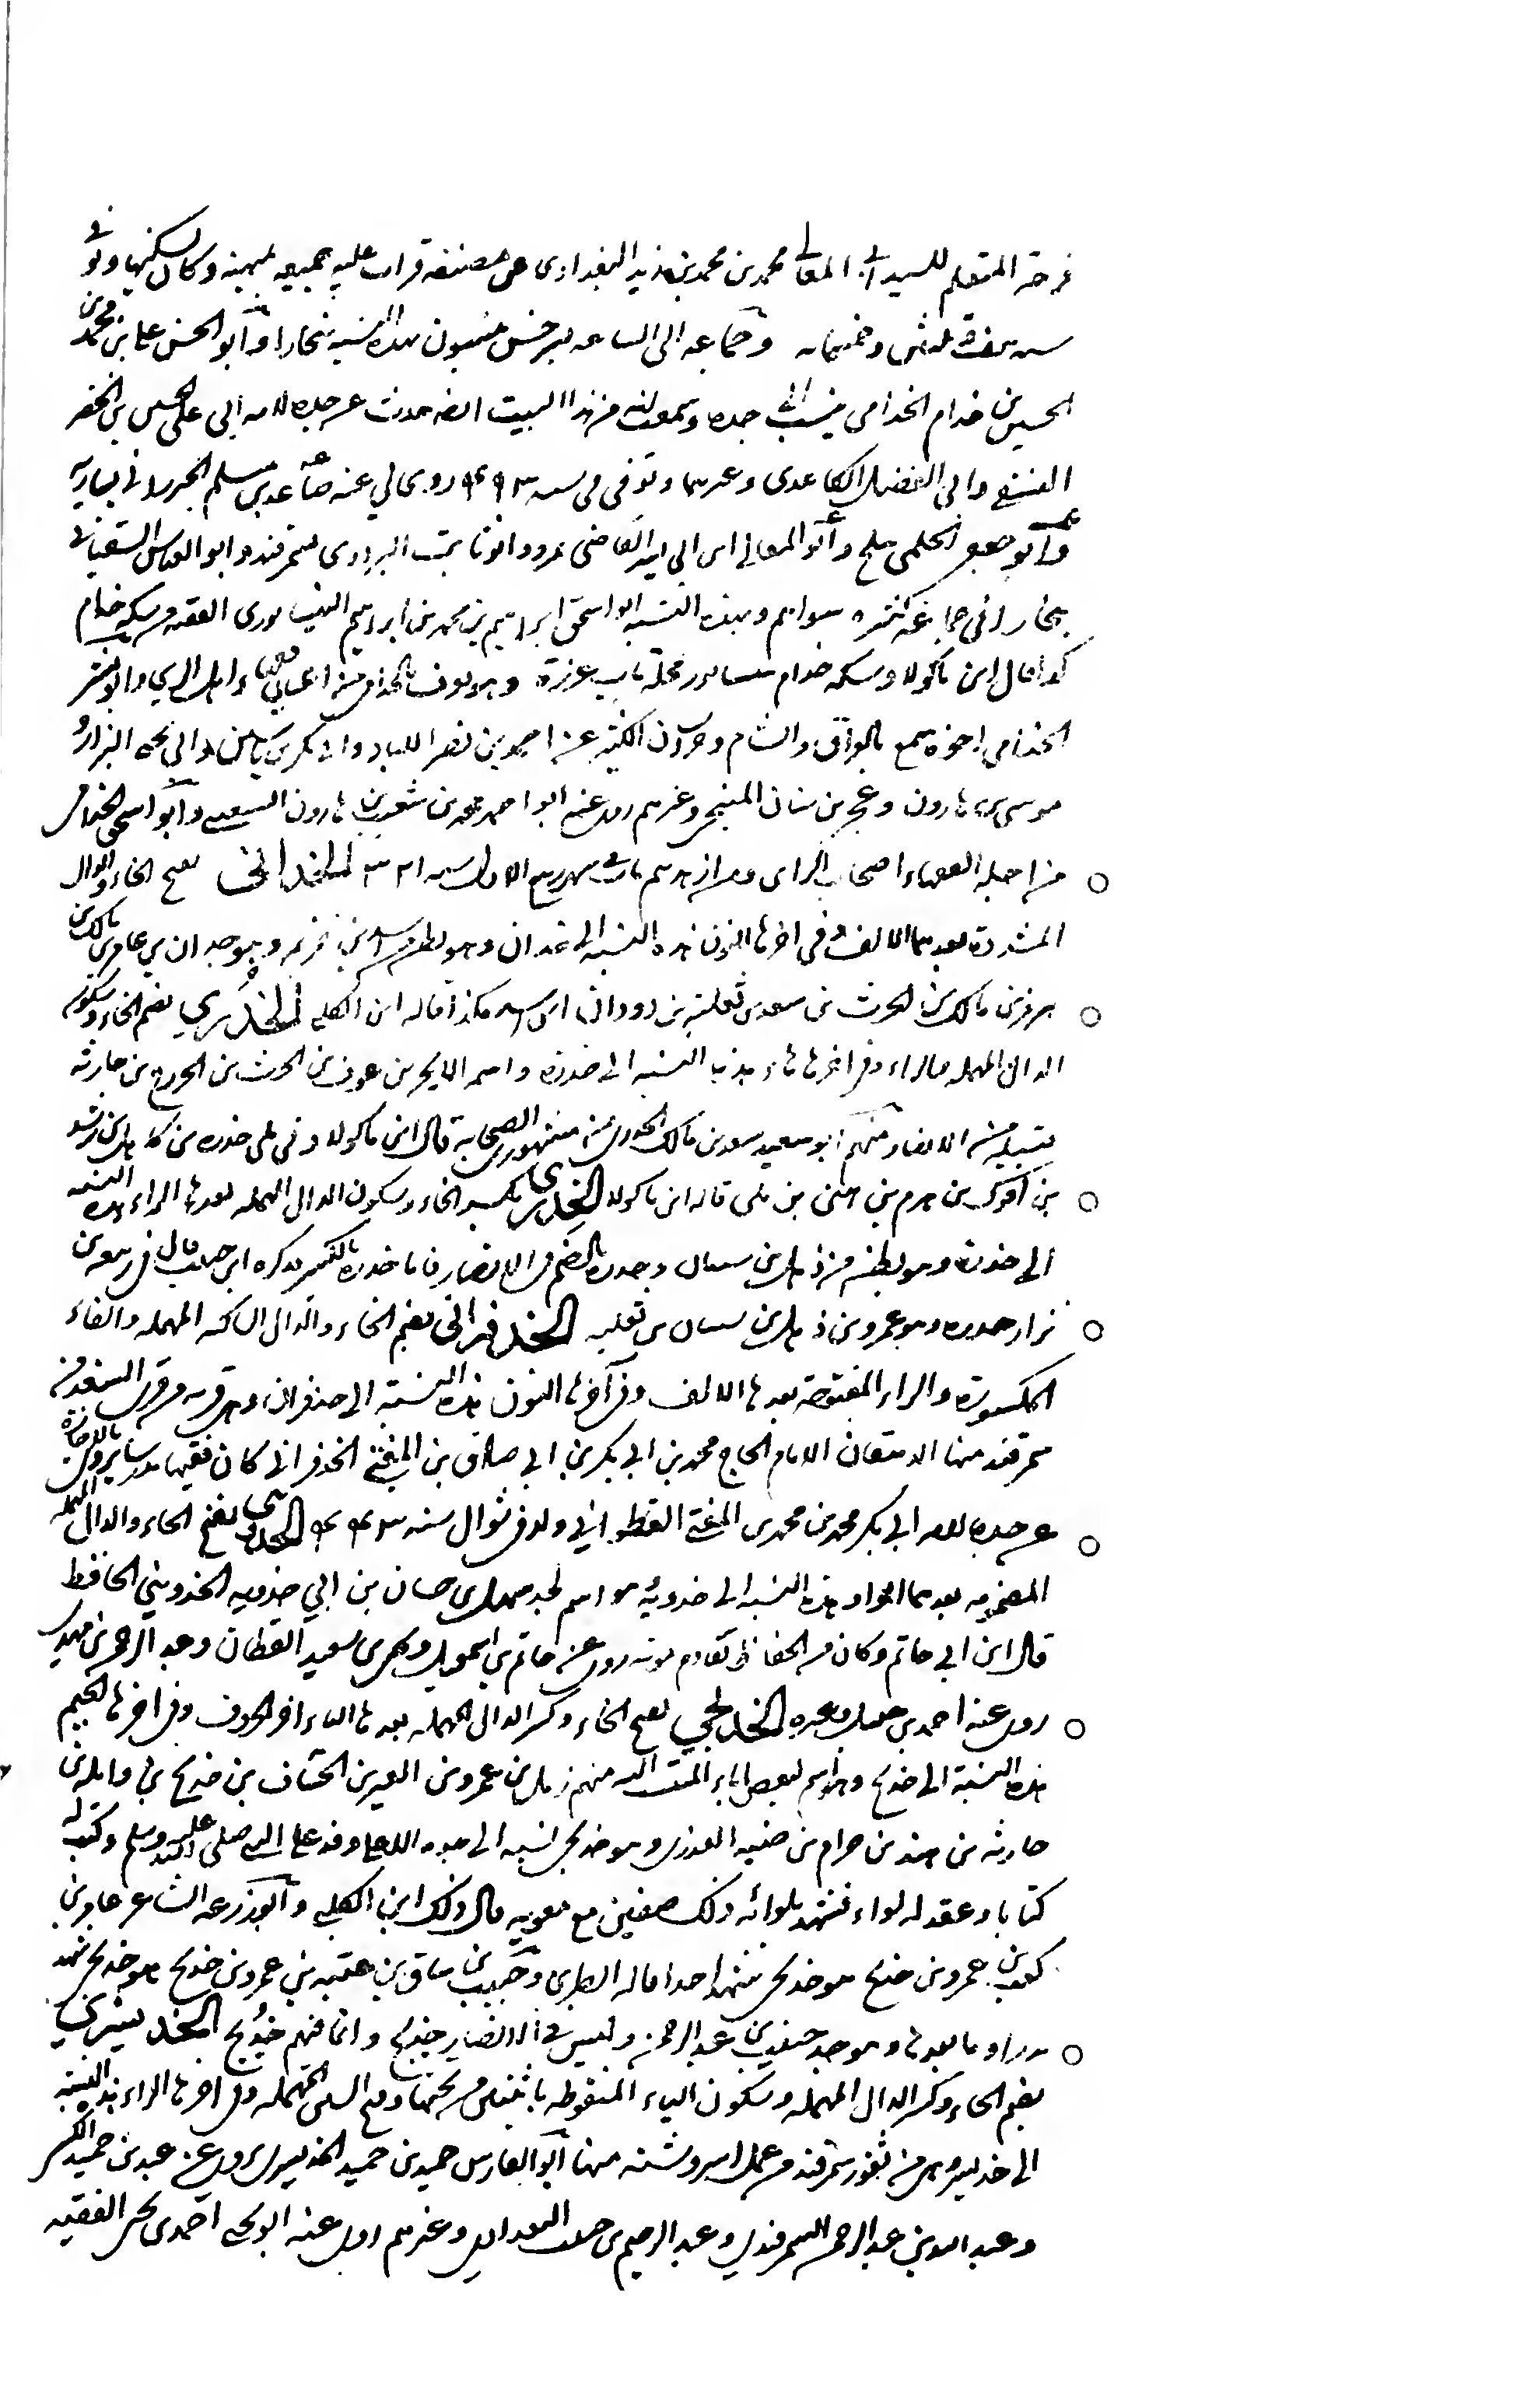 فرحة المتعلم للسيد أبي المعالي محمد بن محمد بن زيد البغدادي عن مصنفه قرأت عليه جميعه بميهنه وكان يسكنها وتوفي
سنة وخمسمايه وجماعه الى الساعه بسرخس منسبون بهذه النسبه ببخارا وأبو الحسن علي بن محمد بن
الحسين بن خدام الخدامي ينسب الى جده وسمعت انه من هذا البيت ايضا حدث عن جده لامه أبي علي الحسين بن الخضر
النسفي وابي الفضل الكاغدي وغيرهما وتوفي في سنه ٤٩٣ روى لي عنه صاعد بن مسلم بساريه
وأبو جعفر الحلمي ببلخ وأبو المعالي ابن ابي القاضي بمرو وابو ثابت البزدوي بسمرقند وابو العباس السقباني
ببخارا في جماعة كثيره سواهم وبهذه النسبه ابو اسحق ابراهيم بن محمد بن ابراهيم النيسابوري الفقيه من سكه خدام
كذا قال ابن ماكولا وسكه خدام بنيسابور محلة بباب عزرة وهو يعرف بالخدامي من اعيان فقهاء اهل الري وابو بشر
الخدامي اخوه سمع بالعراق والشام وخراسان الكثير عن احمد بن نصر اللباد وابي بكر بن ياسين وابي يحيى البزار و
موسى بن هارون وعمر بن سنان المنبجي وغيرهم روى عنه ابو احمد محمد بن شعيب بن هارون الشعيبي وأبو اسحق الخدامي
من اجلة الفقهاء اصحاب الراى مات في شهر ربيع الاول سنه ٣٢١ الخداني بفتح الخاء والدال
المشددة بعدهما الالف وفي اخرها النون هذه النسبه الى خدان وهو بطن من اسد بن خزيمه وهو خدان بن عامر بن مالك بن
هر بن مالك بن الحرث بن سعد بن ثعلبة بن دودان بن اسد هكذا قاله ابن الكلبي الخدري بضم الخاء وسكون
الدال المهمله والراء وفي اخرها هاء هذه النسبه الى خدره واسمه الابجر بن عوف بن الحرث بن الخزرج بن حارثه
قبيله من الانصار منهم ابو سعيد سعد بن مالك الخدري من مشهوري الصحابة قال ابن ماكولا وفي بلى خدره بن كاهل بن رشد
بن افرك بن هرم بن هنى بن بلى قاله ابن ماكولا الخدري بكسر الخاء وسكون الدال المهمله بعدها الراء هذه النسبه
الى خدرة وهو بطن من ذهل بن شيبان وخدره بالضم في الانصار فاما خدره بالكسر ذكره ابن حبيب قال في ربيعه بن
نزار خدره وهو عمرو بن ذهل بن شيبان بن ثعلبه الخدفراني بضم الخاء والدال الساكنه المهمله والفاء
المكسورة والراء المفتوحة بعدها الالف وفي آخرها النون هذه النسبة الى خدفران وهي قريه من قرى السغد من
سمرقند منها الدهقان الامام الحاج محمد بن ابي بكر بن ابي صادق بن المفتي الخدفراني كان فقيها مدرسا يروي بالاجازة
عن جده لامه ابي بكر محمد بن محمد بن المفتي القطواني ولد في شوال سنه ٤٨٣ الخدويي بفتح الخاء والدال المهمله
المضمومه بعدهما الواو هذه النسبه الى خدويه هو اسم لجد سهل بن حسان بن ابي خدويه الخدويني الحافظ
قال ابن ابي حاتم وكان من الحفاظ تقادم موته روى عن حاتم بن اسمعيل ويحيى بن سعيد القطان وعبد الرحمن بن مهدي
روى عنه احمد بن حنبل وغيره الخديجي بفتح الخاء وكسر الدال المهمله بعدها الياء اخر الحروف وفي اخرها الجيم
هذه النسبة الى خديج وهو اسم لبعض اباء المنتسب اليه منهم زمل بن عمرو بن العنز بن الخشاف بن خديج بن واثلة بن
حارثه بن هند بن حرام بن ضنه العذري وهو خديجي نسبه الى جده الاعلى وفد على النبي صلى الله عليه وسلم وكتب له
كتابا وعقد له لواء فشهد بلوائه ذلك صفين مع معويه قال ذلك ابن الكلبي وأبو زرعه الشاعر عامر بن
كعب بن عمرو بن خديج هو خديجي شهد احدا قاله الطبري وحبيب بن ساف بن عتبه بن عمرو بن خديج هو خديجي شهد
بدرا وما بعدها وهو جد خبيب بن عبد الرحمن وليس في الانصار خديج وانما فيهم خديج الخديسري
بضم الخاء وكسر الدال المهمله وسكون الياء المنقوطه باثنتين من تحتها وفتح السين المهمله وفي اخرها الراء هذه النسبة
الى خديسر وهي من ثغور سمرقند من عمل اسروشنه منها ابو الفارس حميد بن حميد الخديسري يروي عن عبد بن حميد الكسي
وعبد الله بن عبد الرحمن السمرقندي وعبد الرحيم بن حبيب البغدادي وغيرهم روى عنه ابو يحيى احمد بن يحيى الفقيه